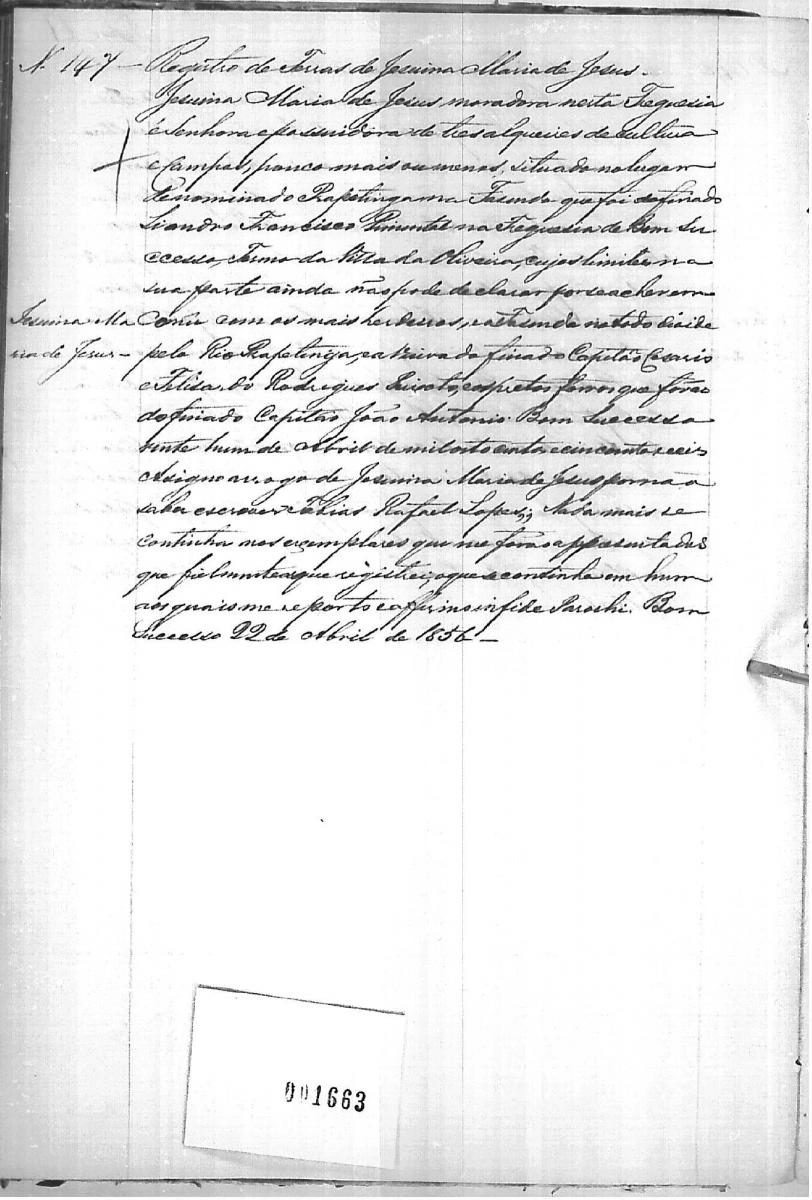 N. 147 — Registro de Terras de Jesuina Maria de Jesus.
Jesuina Maria de Jesus moradora nesta Freguesia
é Senhora e possuidora de tres alqueires de cultura
e Campos, pouco mais ou menos, situado no lugar
denominado Rapetinga na Fasenda que foi do finado
Liandro Francisco Pimentel na Freguesia de Bom Su-
ccesso, Termo da Villa da Oliveira, cujos limites na
sua parte ainda não pode declarar por se acher em
Comū com os mais herdeiros, e a Fasenda no todo divide
Jesuina Ma
ria de Jesus —
pelo Rio Rapetinga, e a Beira do finado Capitão Cesario
e Felisardo Rodrigues e os que forão
do finado Capitão João Antonio. Bom Successo
vinte hum de Abril de mil oito centos e cincoenta e ceis
Asigno arrogo de Jesuina Maria de Jesus por não
saber escrever Tobias Rafael Lopes,, Nada mais se
continha nos exemplares que me forão appresentados
que fielmente aqui registrei, o que se continha em hum
aos quais me reporto e affirmo infide Parochi. Bom
Successo 22 de Abril de 1856 —
001663